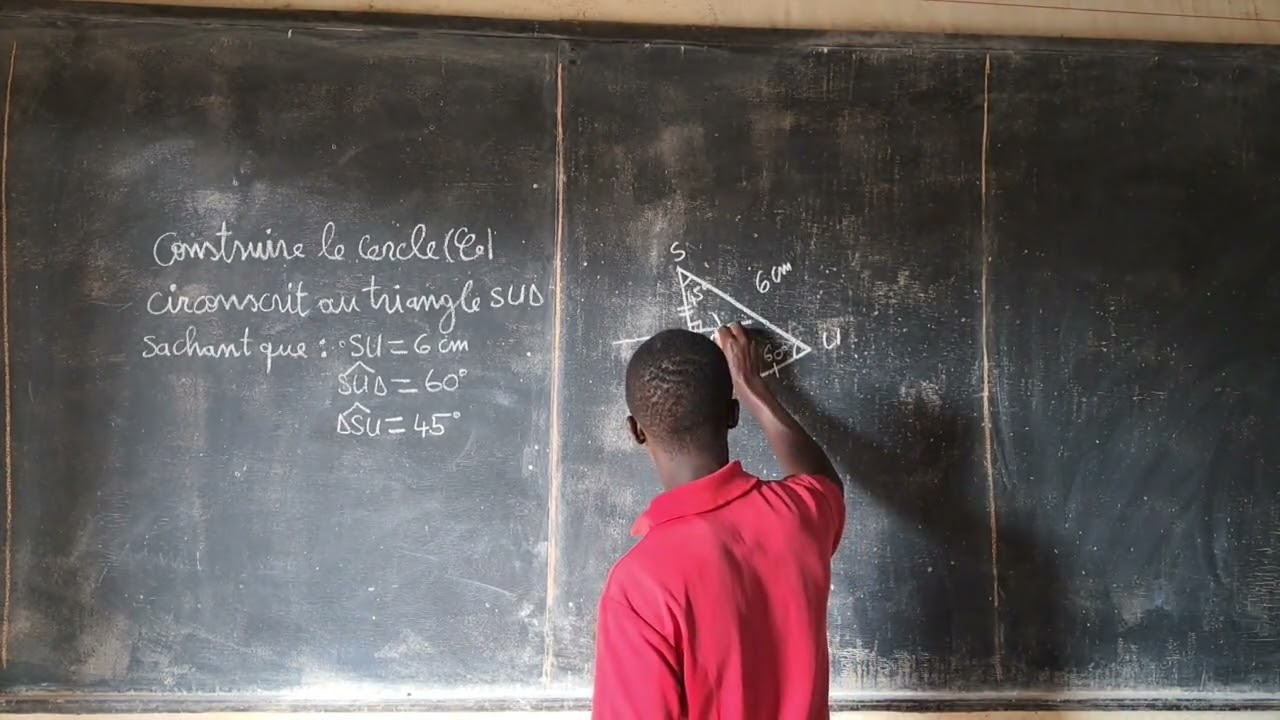 Construire le cercle (C)
circonscrit au triangle SUD
sachant que : SU = 6 cm
SUD = 60°
DSU = 45°
S
45°
6 cm
U
60°